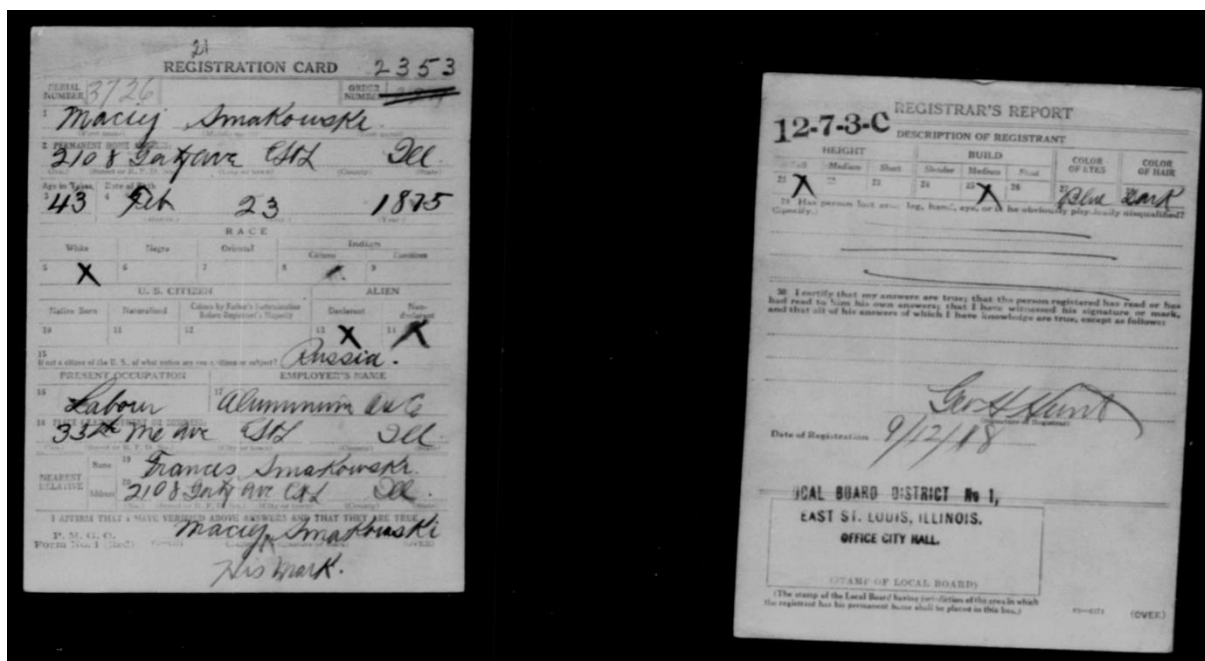 21
REGISTRATION CARD 2353
SERIAL NUMBER 3726 ORDER NUMBER
1 Maciej Smakowski
2 PERMANENT HOME
2108 Gaty Ave EStL Ill.
Age in Years Date of Birth
3 43 4 Feb 23 1875
RACE
White Negro Oriental Indian
Citizen
5 X 6 7 8 9
U. S. CITIZEN ALIEN
Native Born Naturalized Citizen by Father's Naturalization Before Registrant's Majority Declarant Non-declarant
10 11 12 13 X 14 X
15
If not a citizen of the U. S., of what nation are you a citizen or subject? Russia.
PRESENT OCCUPATION EMPLOYER'S NAME
16 Labour 17 Aluminum Co
18
33 Mo ave EStL Ill
NEAREST RELATIVE Name 19 Frances Smakowski.
Address 20 2108 Gaty Ave EStL Ill.
I AFFIRM THAT I HAVE VERIFIED ABOVE ANSWERS AND THAT THEY ARE TRUE
P. M. G. O.
Form No. 1 (Red) Maciej Smakowski (OVER)
His Mark.
REGISTRAR'S REPORT
12-7-3-C DESCRIPTION OF REGISTRANT
HEIGHT BUILD COLOR OF EYES COLOR OF HAIR
Tall Medium Short Slender Medium Stout
21 X 22 23 24 25 X 26 27 Blue 28 Dark
29 Has person lost arm, leg, hand, eye, or is he obviously physically disqualified?
(Specify.)
30 I certify that my answers are true; that the person registered has read or has
had read to him his own answers; that I have witnessed his signature or mark,
and that all of his answers of which I have knowledge are true, except as follows:
Geo H Hunt
(Signature of Registrar)
Date of Registration 9/12/18
OCAL BOARD DISTRICT No 1,
EAST ST. LOUIS, ILLINOIS.
OFFICE CITY HALL.
(STAMP OF LOCAL BOARD)
(The stamp of the Local Board having jurisdiction of the area in which
the registrant has his permanent home shall be placed in this box.)
(OVER)